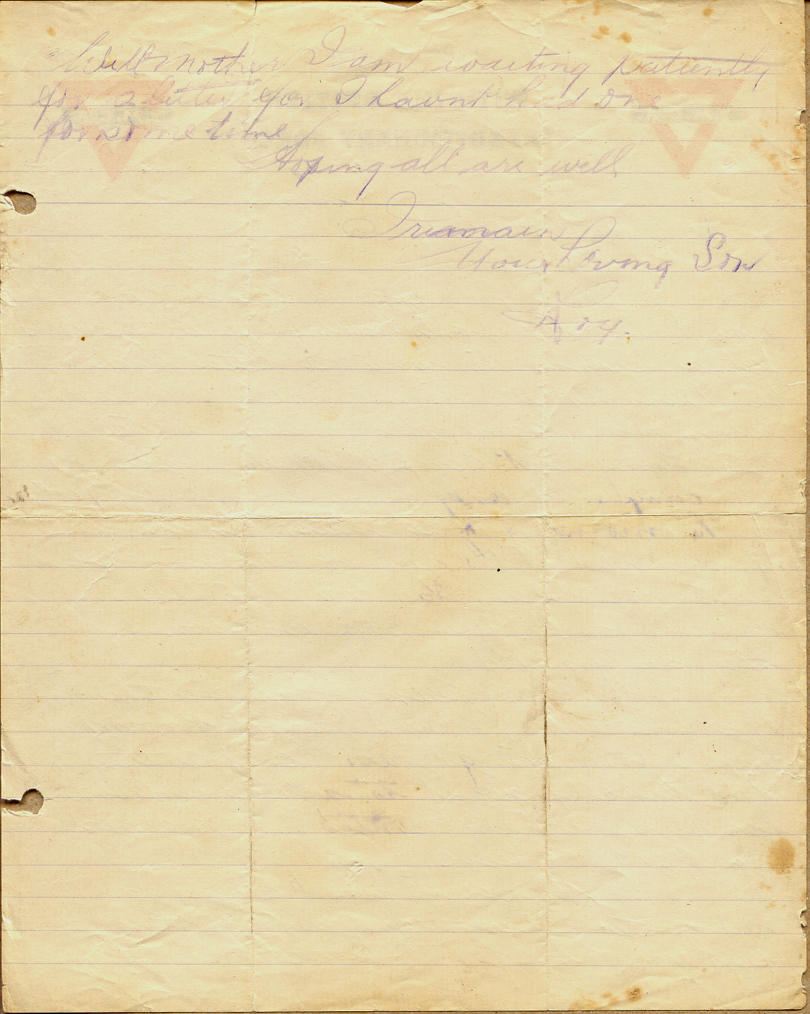 Well mother I am waiting patiently
for a letter for I havnt had one
for some time
Hoping all are well
I remain
Your Loving Son
Roy.